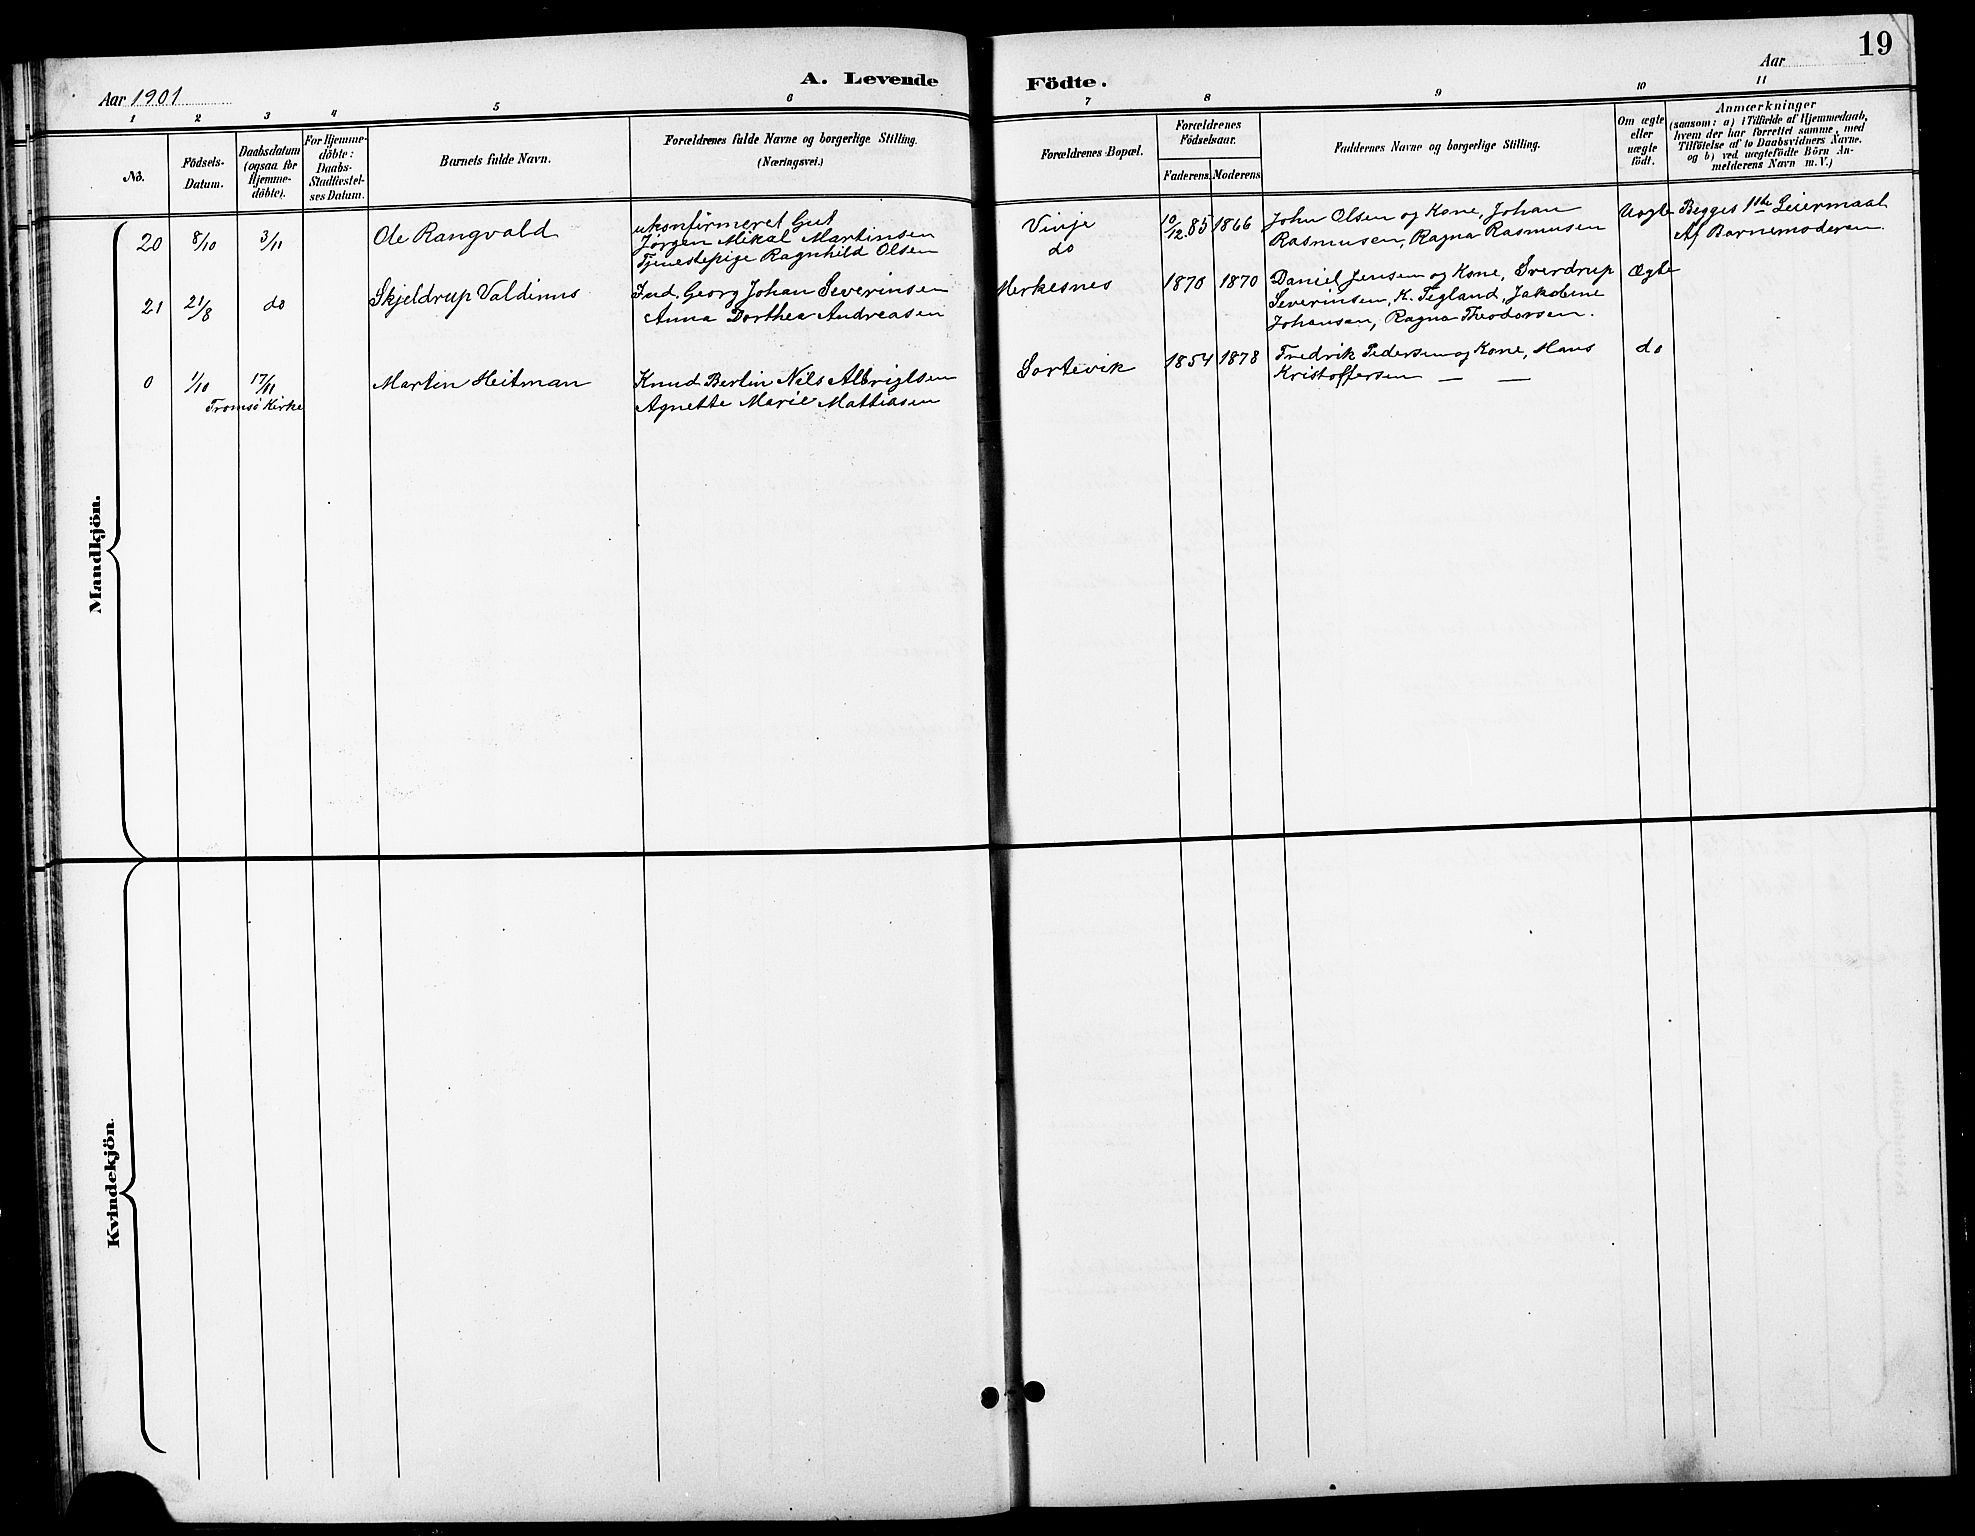 19
A. Levende Födte.
Aar 1901
Aar
1 2 3 4 5 6 7 8 9 10 11
No.
Födsels-
Datum.
Daabsdatum
(ogsaa for
Hjemme-
döbte).
For Hjemme-
döbte:
Daabs-
Stadfæstel-
ses Datum.
Barnets fulde Navn.
Forældrenes fulde Navne og borgerlige Stilling.
(Næringsvei.)
Forældrenes Bopæl.
Forældrenes
Födselsaar.
Faderens. Moderens.
Faddernes Navne og borgerlige Stilling.
Om ægte
eller
uægte
födt.
Anmærkninger
(saasom: a) i Tilfælde af Hjemmedaab,
hvem der har forrettet samme, med
Tilföielse af to Daabsvidners Navne.
og b) ved uægtefödte Börn An-
melderens Navn m. V.)
Mandkjön.
20 8/10 3/11 Ole Rangvald
ukonfirmeret Gut
Jørgen Mikal Martinsen
Tjenestepige Ragnhild Olsen
do
10/12 85 1866
John Olsen og Kone, Johan
Rasmusen, Ragna Rasmusen
Uægte
Begges 1ste Leiermaal
Af Barnemoderen.
21 21/8 do Skjeldrup Valdinus
Ind. Georg Johan Severinsen
Anna Dorthea Andreasen
Merkesnes 1870 1870
Daniel Jensen og Kone, Sverdrup
Severinsen, K. Tegland, Jakobine
Johansen, Ragna Theodorsen.
Ægte
0 1/10 17/11 Martin Heitman
Tromsö Kirke
Knud Berlin Nils Albrigtsen
Agnette Marie Mattiasen
Sortevik 1854 1878
Fredrik Pedersen og Kone, Hans
Kristoffersen — —
do
Kvindekjön.